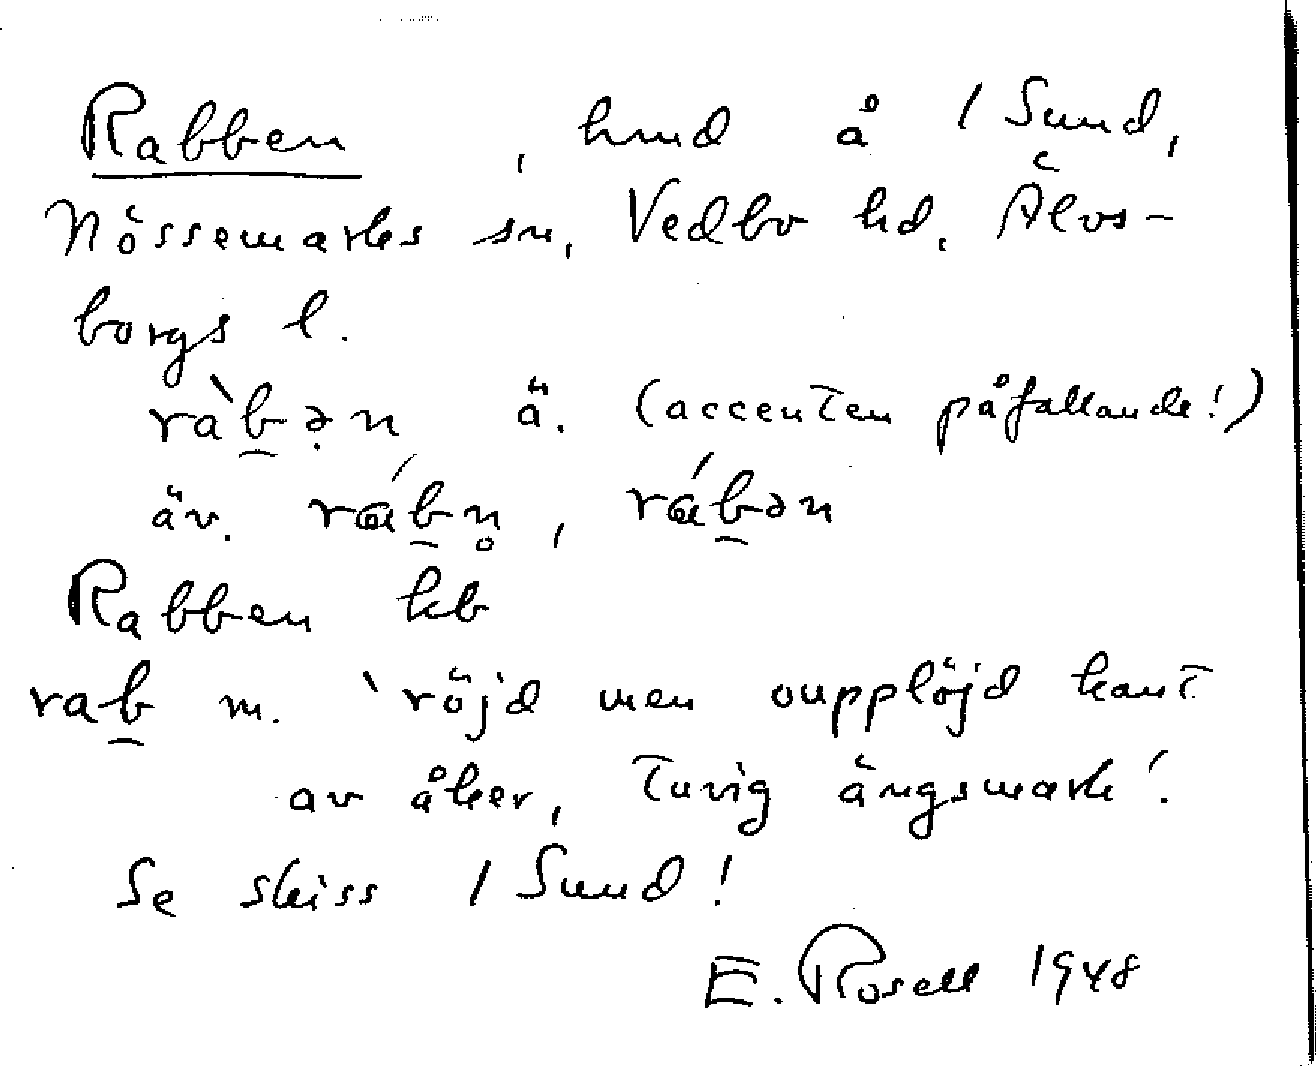 Rabben , hmd å 1 Sund,
Nössemarks sn, Vedbo hd, Älvs-
borgs l.
ràb̠ə̣n ä. (accenten påfallande!)
äv. ráb̠n̥ , ráb̠ən
Rabben kb
rab̠ m. 'röjd men oupplöjd kant
av åker, tuvig ängsmark'.
Se skiss 1 Sund!
E. Rosell 1948